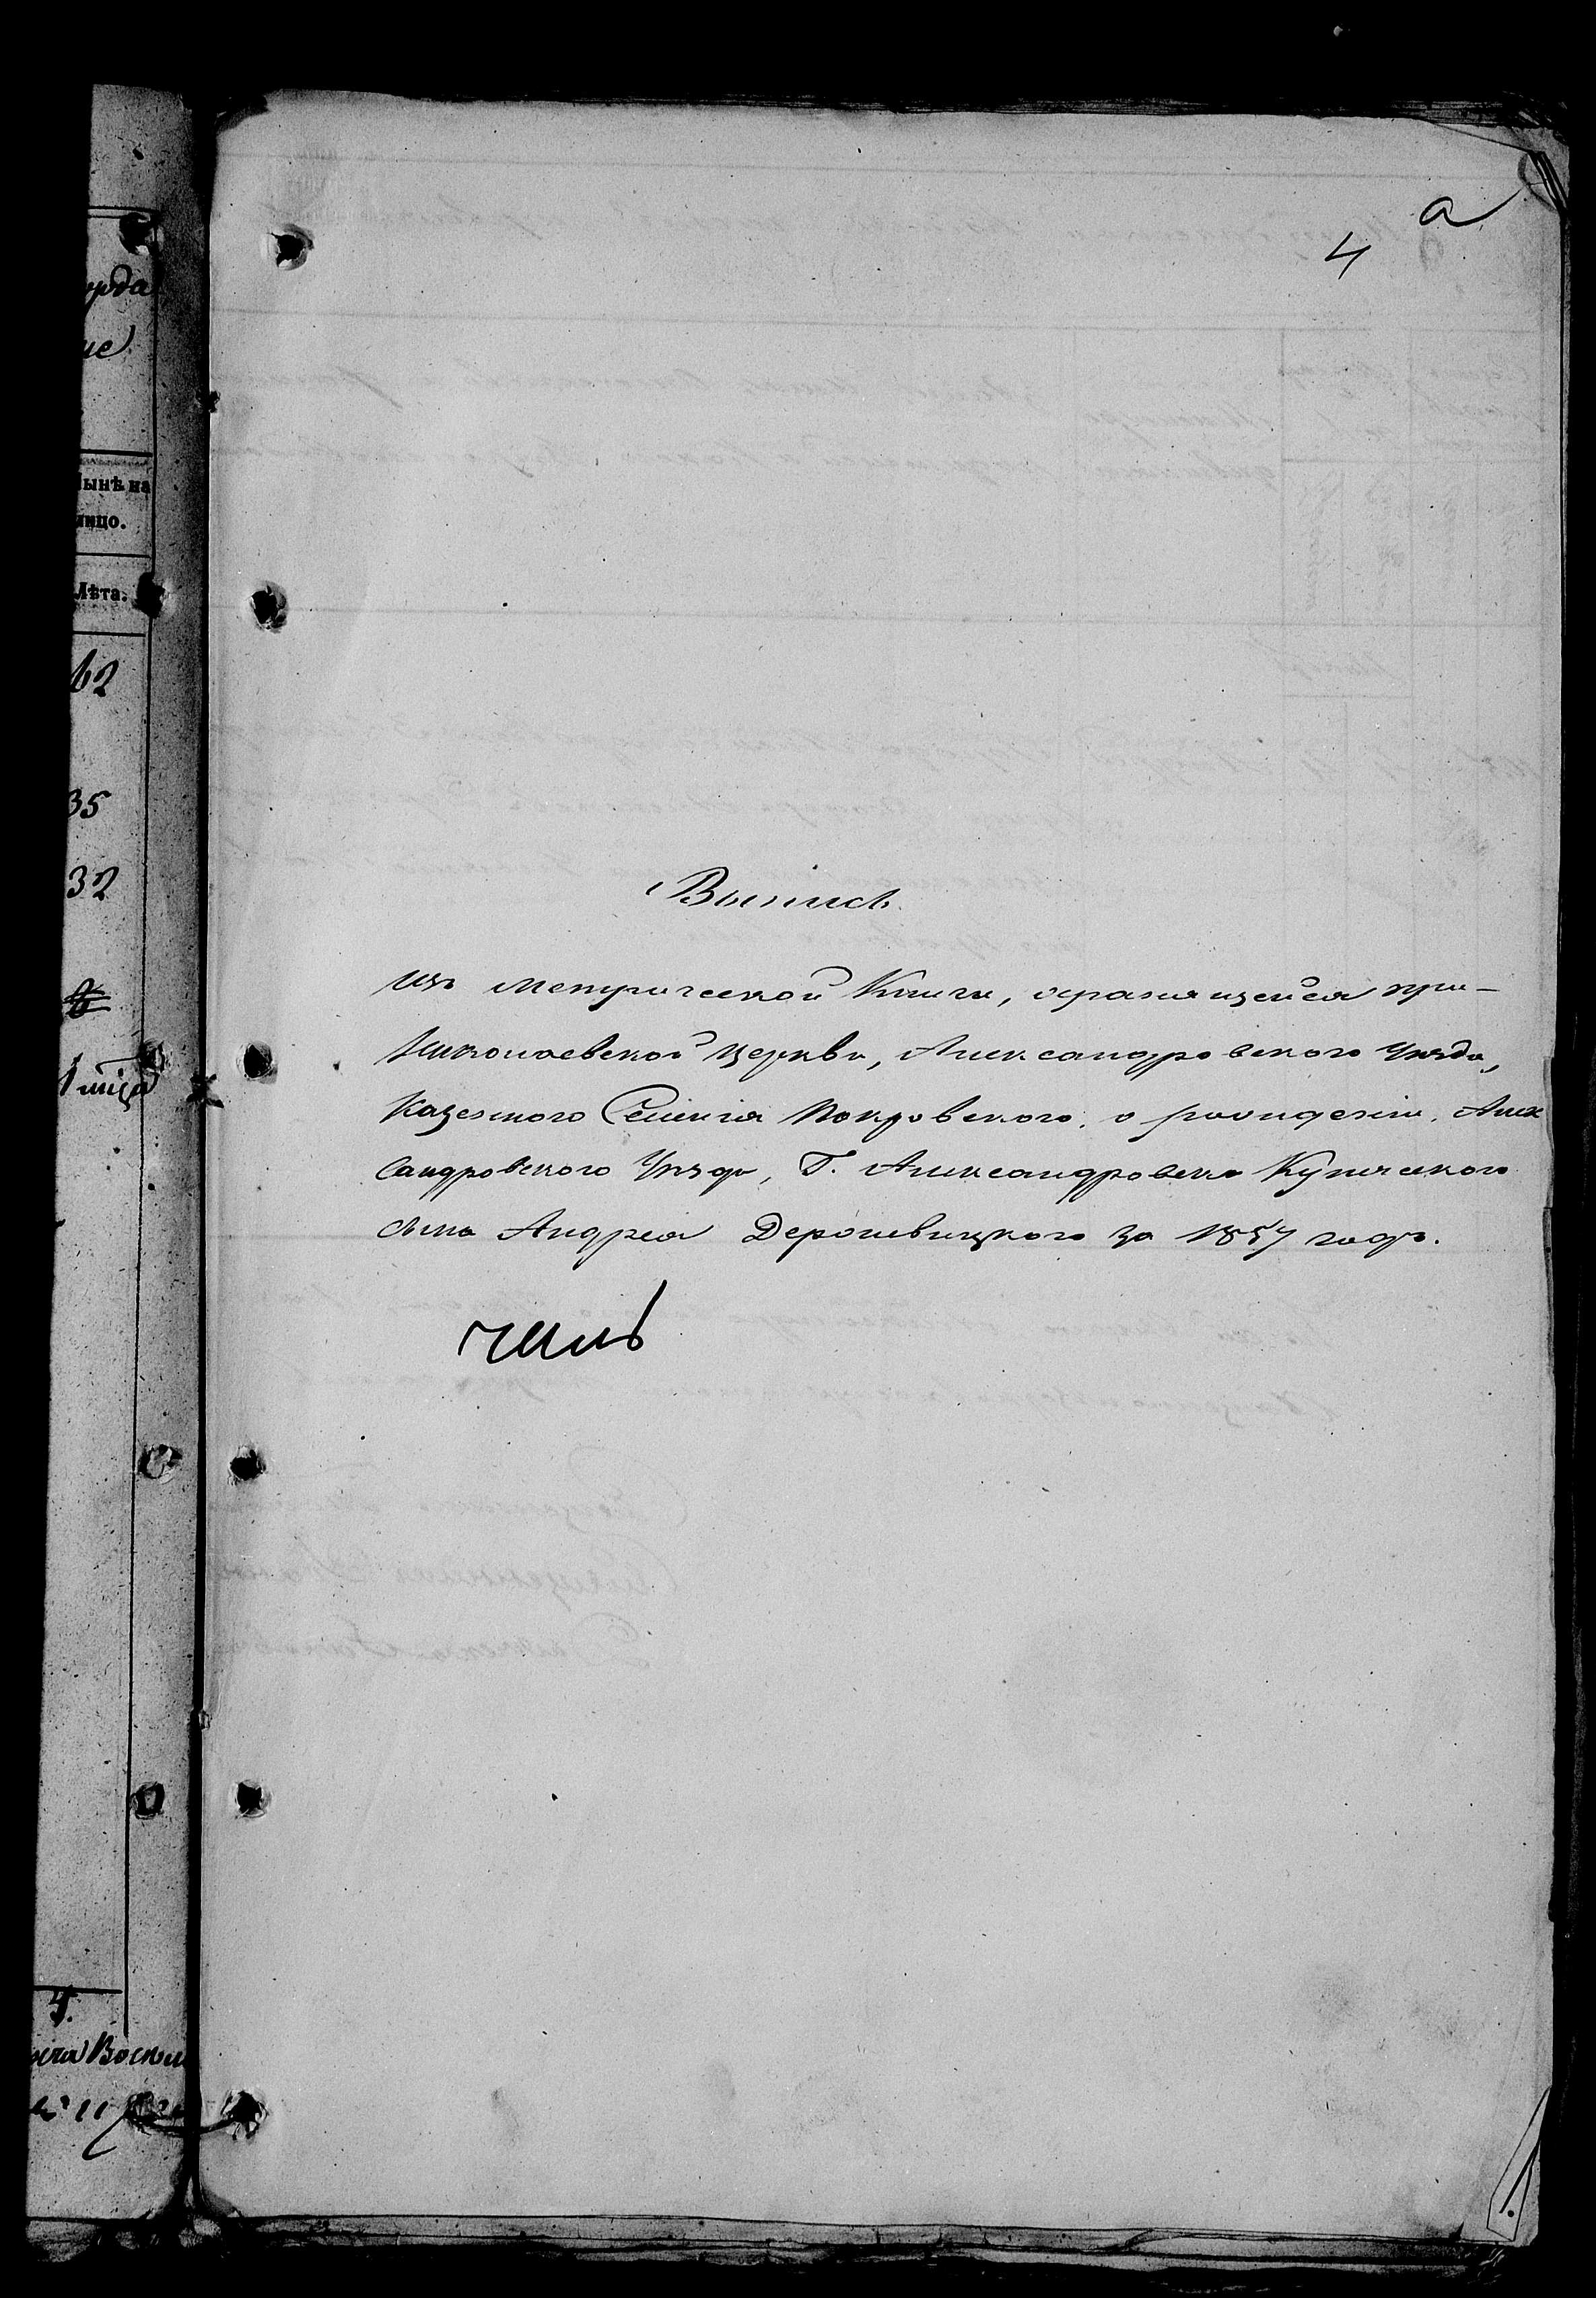 а
4
Выпись
изъ Метрической Книги, хранящейся при-
Николаевской Церкви, Александровского Уѣзда,
Казенного Селенія Покровского, о рожденіи, Алек
сандровского Уѣзда, Г. Александровска Купеческого
сына Андрея Дерошевицкого за 1857 годъ.
ынѣ на
лицо.
Лѣта.
62
35
32